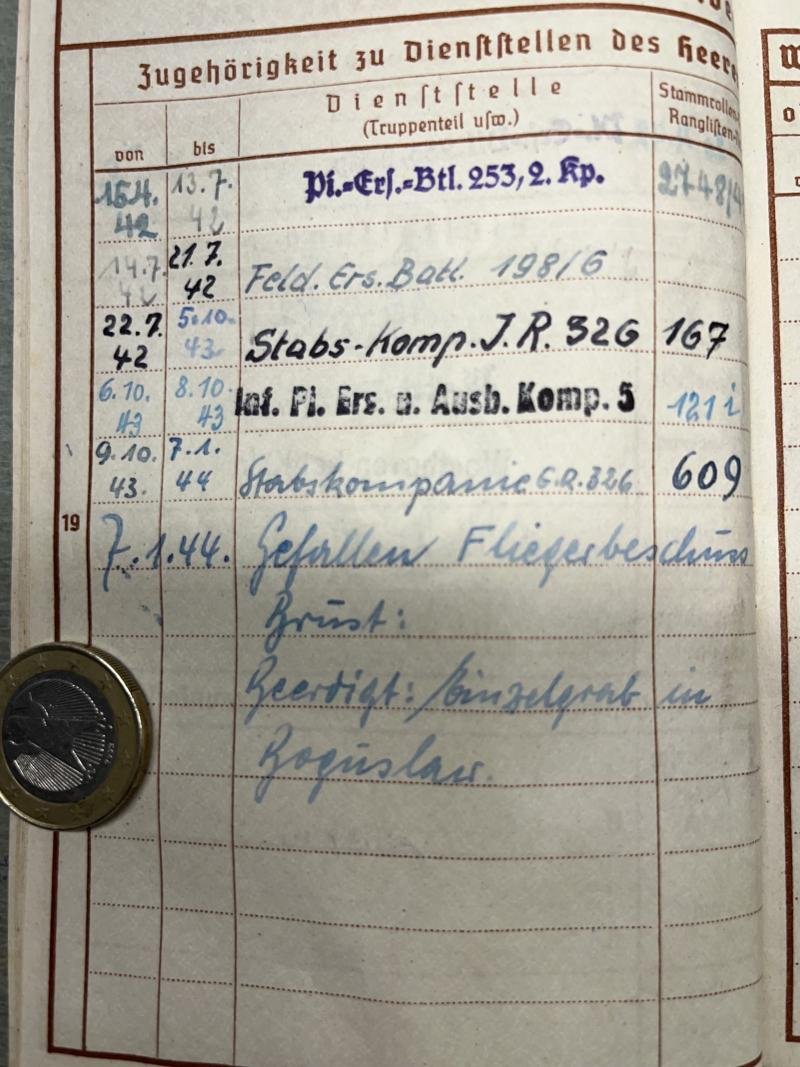 Zugehörigkeit zu Dienststellen des Heere
von bis Dienststelle Stammrollen-
(Truppenteil usw.) Ranglisten-
15.4. 42 13.7. 42 Pi.-Ers.-Btl. 253, 2. Kp. 2748/4
14.7. 42 21.7. 42 Feld. Ers. Batl. 198/6
22.7. 42 5.10. 43 Stabs-Komp. J.R. 326 167
6.10. 43 8.10. 43 Inf. Pi. Ers. u. Ausb. Komp. 5 121 i
9.10. 43. 7.1. 44 Stabskompanie G.R. 326 609
19
7.1.44. Gefallen Fliegerbeschuss
Brust:
Beerdigt: Einzelgrab in
Boguslaw.
W